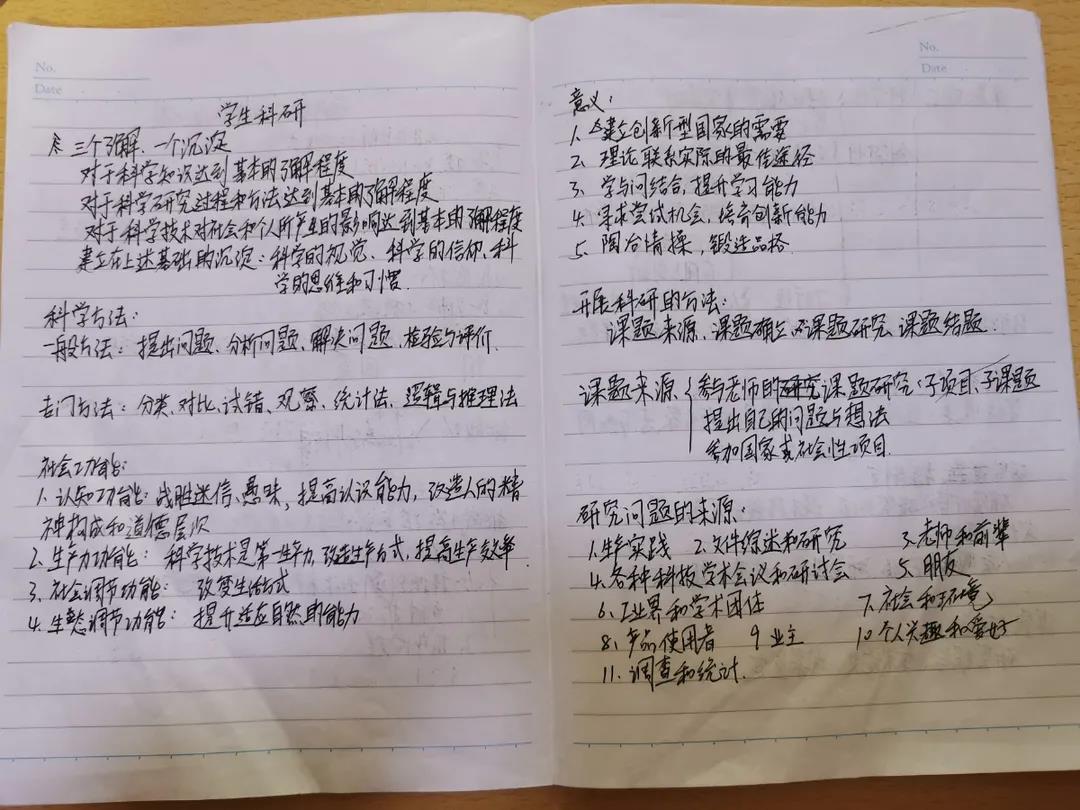 No.
Date
学生科研
三个了解、一个沉淀
对于科学知识达到基本的了解程度
对于科学研究过程和方法达到基本的了解程度
对于科学技术对社会和个人所产生的影响达到基本的了解程度
建立在上述基础的沉淀：科学的视觉、科学的信仰、科
学的思维和习惯.
科学方法：
一般方法：提出问题、分析问题、解决问题、检验与评价.
专门方法：分类、对比、试错、观察、统计法、逻辑与推理法
社会功能：
1. 认知功能：战胜迷信、愚昧，提高认识能力，改造人的精
神构成和道德层次
2. 生产力功能：科学技术是第一生产力，改造生产方式，提高生产效率.
3. 社会调节功能：改变生活方式
4. 生态调节功能：提升适应自然的能力
No.
Date
意义：
1. 建立创新型国家的需要
2. 理论联系实际的最佳途径
3. 学与问结合，提升学习能力
4. 寻求尝试机会，培育创新能力
5. 陶冶情操，锻造品格
开展科研的方法：
课题来源、课题确立、课题研究、课题结题.
课题来源 { 参与老师的研究课题研究：子项目、子课题
提出自己的问题与想法
参加国家或社会性项目.
研究问题的来源：
1. 生产实践 2. 文件综述和研究 3. 老师和前辈
4. 各种科技学术会议和研讨会 5. 朋友
6. 工业界和学术团体 7. 社会和环境
8. 产品使用者 9 业主 10 个人兴趣和爱好
11. 调查和统计.